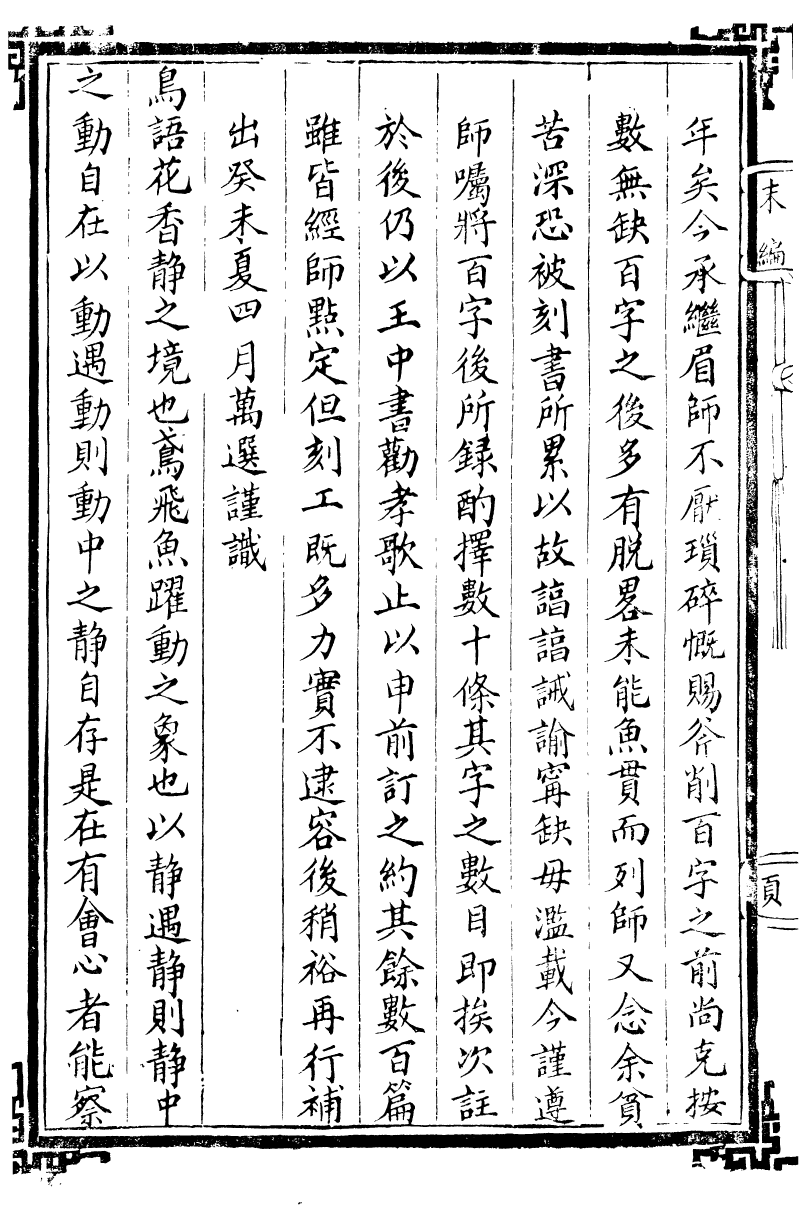 末編
頁
年矣今承繼眉師不厭瑣碎慨賜斧削百字之前尚克按
數無缺百字之後多有脫畧未能魚貫而列師又念余貧
苦深恐被刻書所累以故諄諄誡諭寗缺毋濫載今謹遵
師囑將百字後所録酌擇數十條其字之數目即挨次註
於後仍以王中書勸孝歌止以申前訂之約其餘數百篇
雖皆經師點定但刻工既多力實不逮容後稍裕再行補
出癸未夏四月萬選謹識
鳥語花香静之境也鳶飛魚躍動之象也以静遇静則静中
之動自在以動遇動則動中之静自存是在有會心者能察